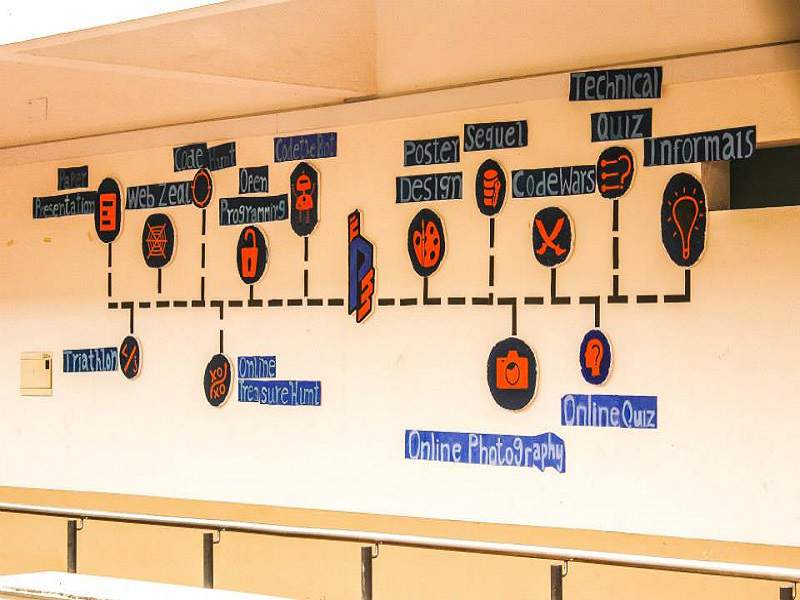 Paper
Presentation
Web Zeal
Code Hunt
Open
Programming
Code The Bot
Poster
Design
Sequel
CodeWars
Technical
Quiz
Informals
Triathlon
</>
XO
XO
Online
Treasure Hunt
Online Photography
Online Quiz